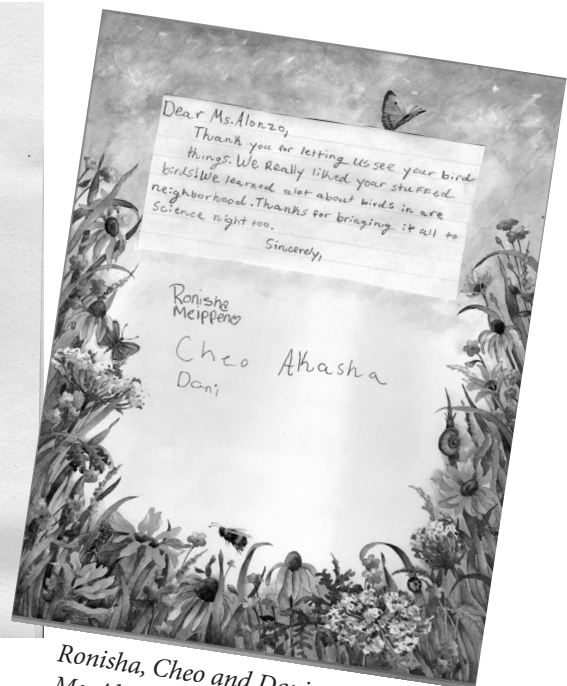 Dear Ms. Alonzo,
Thank you for letting us see your bird
things. We Really liked your stuffed
birds! We learned alot about birds in are
neighborhood. Thanks for bringing it all to
Science night too.
Sincerely,
Ronisha
Meippen
Cheo Akasha
Dani
Ronisha, Cheo and Dani